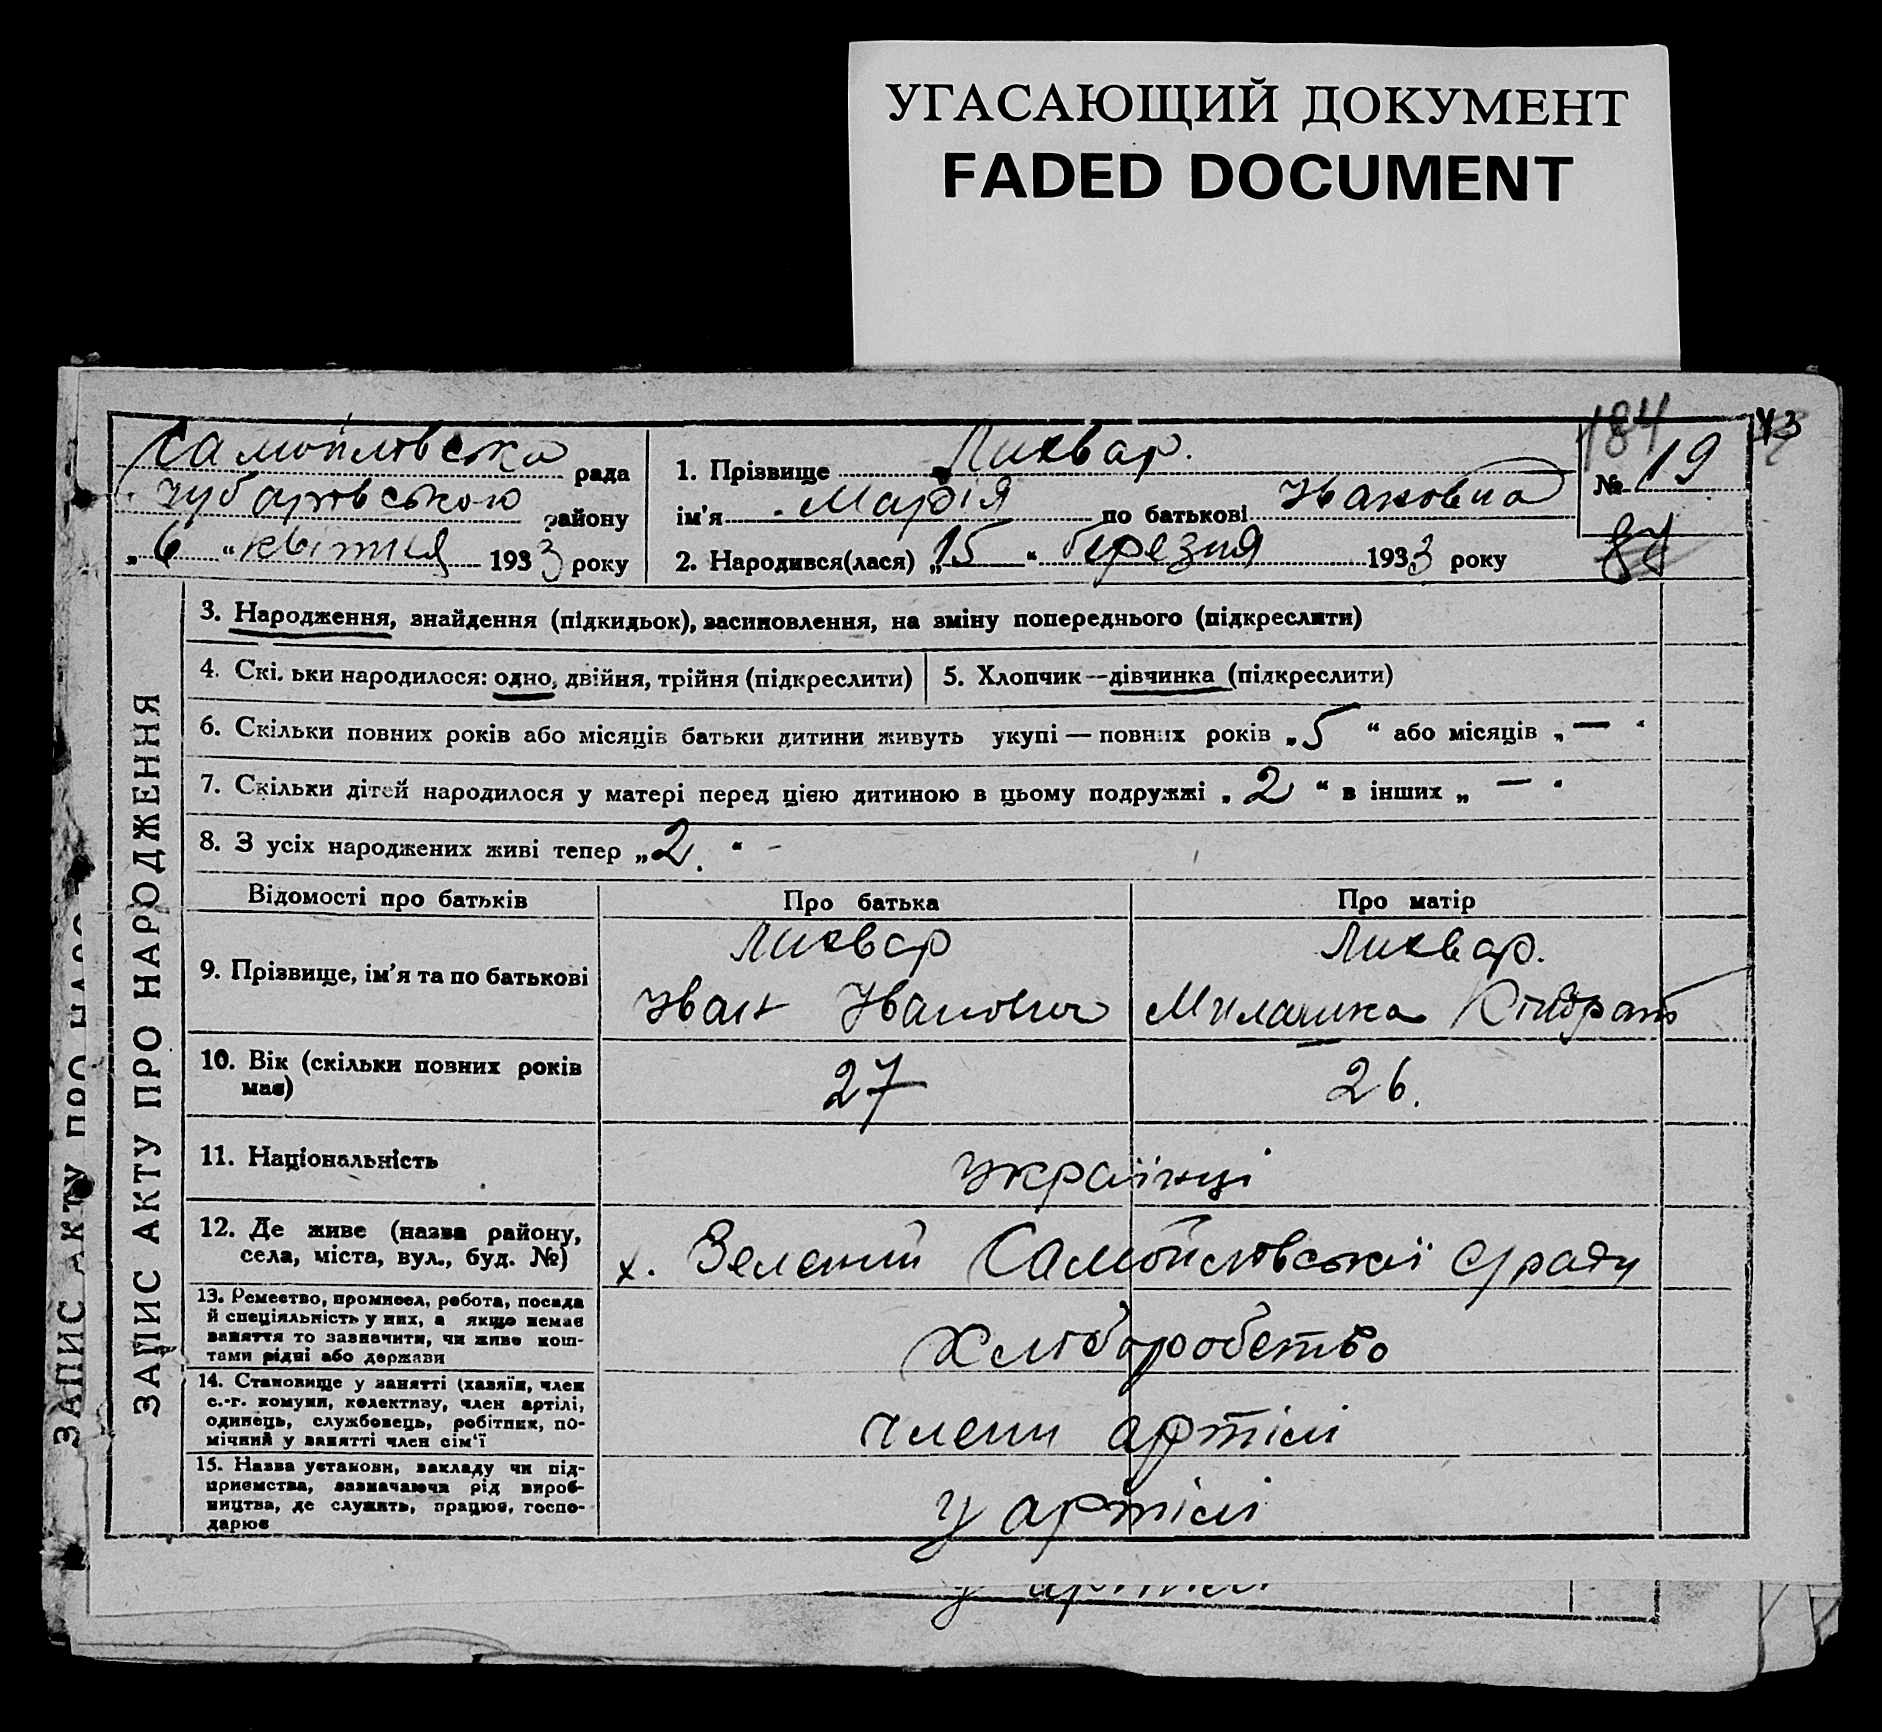 УГАСАЮЩИЙ ДОКУМЕНТ
FADED DOCUMENT
184
43
Самойловська рада
Чубарівською району
„ 6 “ квітня 1933 року
1. Прізвище Лихвар.
ім'я Марія по батькові Ивановна
2. Народився(лася) „ 15 “ березня 1933 року
№ 19
87
ЗАПИС АКТУ ПРО НАРОДЖЕННЯ
3. Народження, знайдення (підкидьок), засиновлення, на зміну попереднього (підкреслити)
4. Скі. ьки народилося: одно, двійня, трійня (підкреслити)
5. Хлопчик—дівчинка (підкреслити)
6. Скільки повних років або місяців батьки дитини живуть укупі — повних років „ 5 “ або місяців „ — “
7. Скільки дітей народилося у матері перед цією дитиною в цьому подружжі „ 2 “ в інших „ — “
8. З усіх народжених живі тепер „ 2. “ -
Відомості про батьків
Про батька
Про матір
9. Прізвище, ім'я та по батькові
Лихвар
Иван Иванович
Лихвар.
Милашка
10. Вік (скільки повних років
має)
27
26.
11. Національність
українці
12. Де живе (назва району,
села, міста, вул., буд. №)
х. Зелений Самойловської с/ради
13. Ремество, промисел, робота, посада
й спеціяльність у них, а якщо немає
заняття то зазначити, чи живе кош-
тами рідні або держави
Хліборобство
14. Становище у занятті (хазяїн, член
с.-г. комуни, колективу, член артілі,
одинець, службовець, робітник, по-
мічний у занятті член сім'ї
члени артілі
15. Назва установи, закладу чи під-
приємства, зазначаючи рід вироб-
ництва, де служить, працює, госпо-
дарює
у артілі
ЗАПИС АКТУ ПРО
у артілі